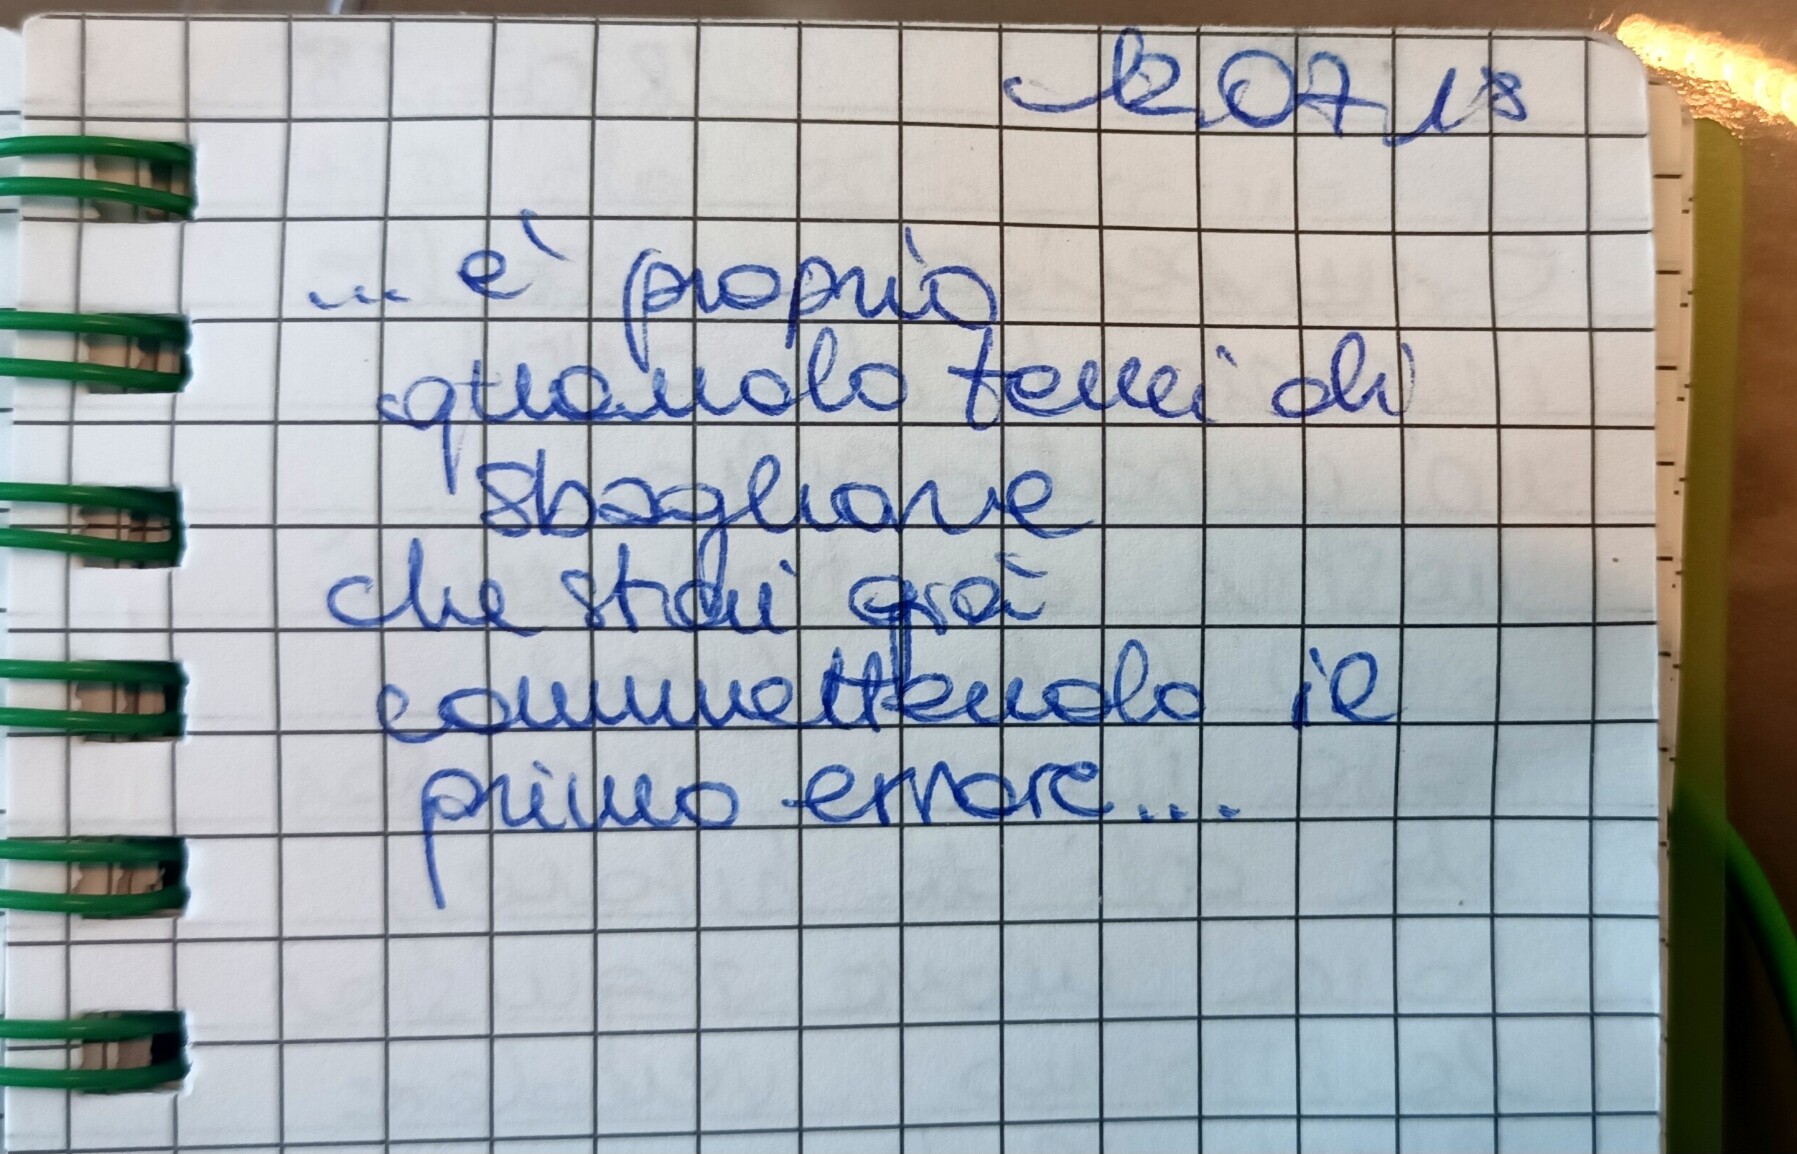 12.07.18
... è proprio
quando temi di
sbagliare
che stai già
commettendo il
primo errore...